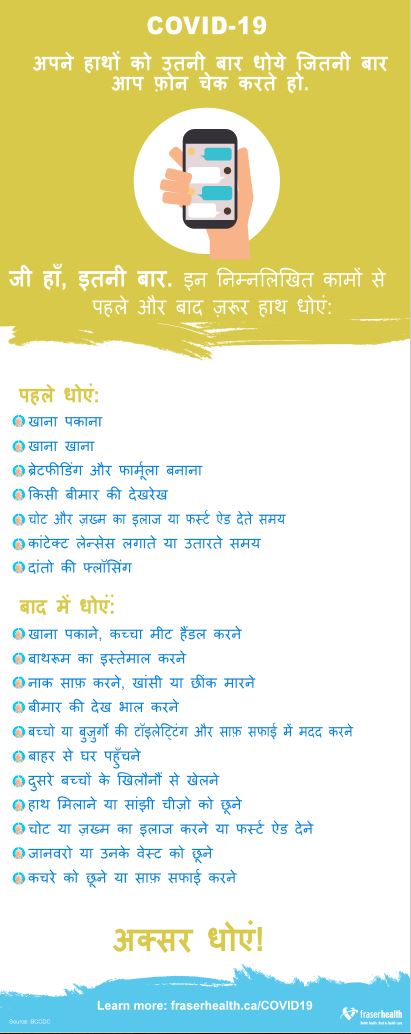 COVID-19
अपने हाथों को उतनी बार धोये जितनी बार
आप फ़ोन चेक करते हो.
जी हाँ, इतनी बार. इन निम्नलिखित कामों से
पहले और बाद ज़रूर हाथ धोएं:
पहले धोएं:
खाना पकाना
खाना खाना
ब्रेटफीडिंग और फार्मूला बनाना
किसी बीमार की देखरेख
चोट और ज़ख्म का इलाज या फर्स्ट ऐड देते समय
कांटेक्ट लेन्सेस लगाते या उतारते समय
दांतो की फ्लॉसिंग
बाद में धोएं:
खाना पकाने, कच्चा मीट हैंडल करने
बाथरूम का इस्तेमाल करने
नाक साफ़ करने, खांसी या छींक मारने
बीमार की देख भाल करने
बच्चो या बुज़ुर्गो की टॉइलेट्टिंग और साफ़ सफाई में मदद करने
बाहर से घर पहुँचने
दुसरे बच्चों के खिलौनौं से खेलने
हाथ मिलाने या सांझी चीज़ो को छूने
चोट या ज़ख्म का इलाज करने या फर्स्ट ऐड देने
जानवरो या उनके वेस्ट को छूने
कचरे को छूने या साफ़ सफाई करने
अक्सर धोएं!
Learn more: fraserhealth.ca/COVID19
Source: BCCDC
fraserhealth
Better health. Best in health care.